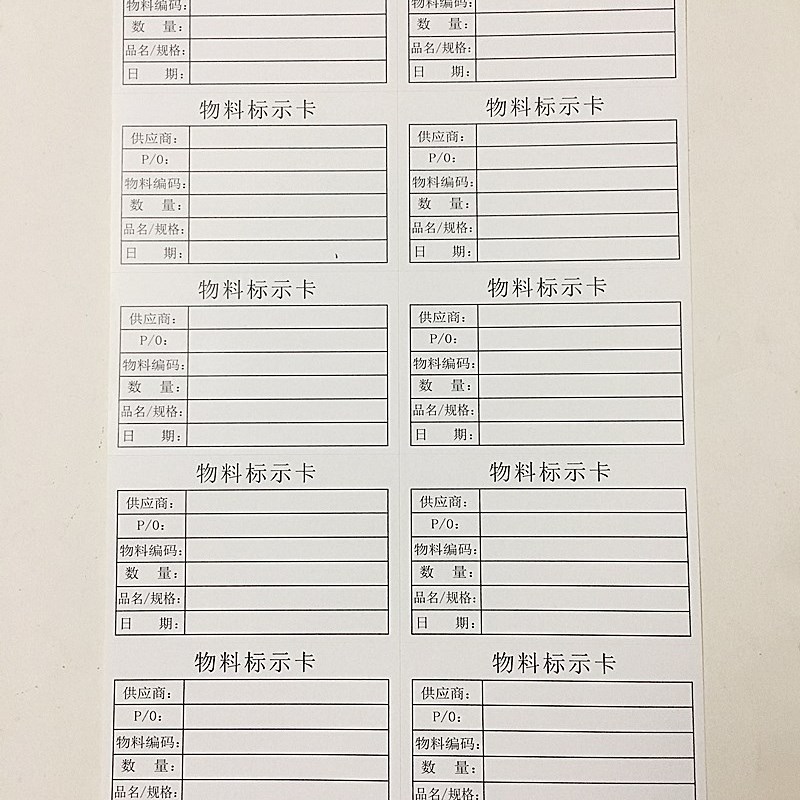 物料编码:
数 量:
品名/规格:
日 期:
物料编码:
数 量:
品名/规格:
日 期:
物料标示卡
供应商:
P/O:
物料编码:
数 量:
品名/规格:
日 期:
物料标示卡
供应商:
P/O:
物料编码:
数 量:
品名/规格:
日 期:
物料标示卡
供应商:
P/O:
物料编码:
数 量:
品名/规格:
日 期:
物料标示卡
供应商:
P/O:
物料编码:
数 量:
品名/规格:
日 期:
物料标示卡
供应商:
P/O:
物料编码:
数 量:
品名/规格:
日 期:
物料标示卡
供应商:
P/O:
物料编码:
数 量:
品名/规格:
日 期:
物料标示卡
供应商:
P/O:
物料编码:
数 量:
品名/规格:
物料标示卡
供应商:
P/O:
物料编码:
数 量:
品名/规格: